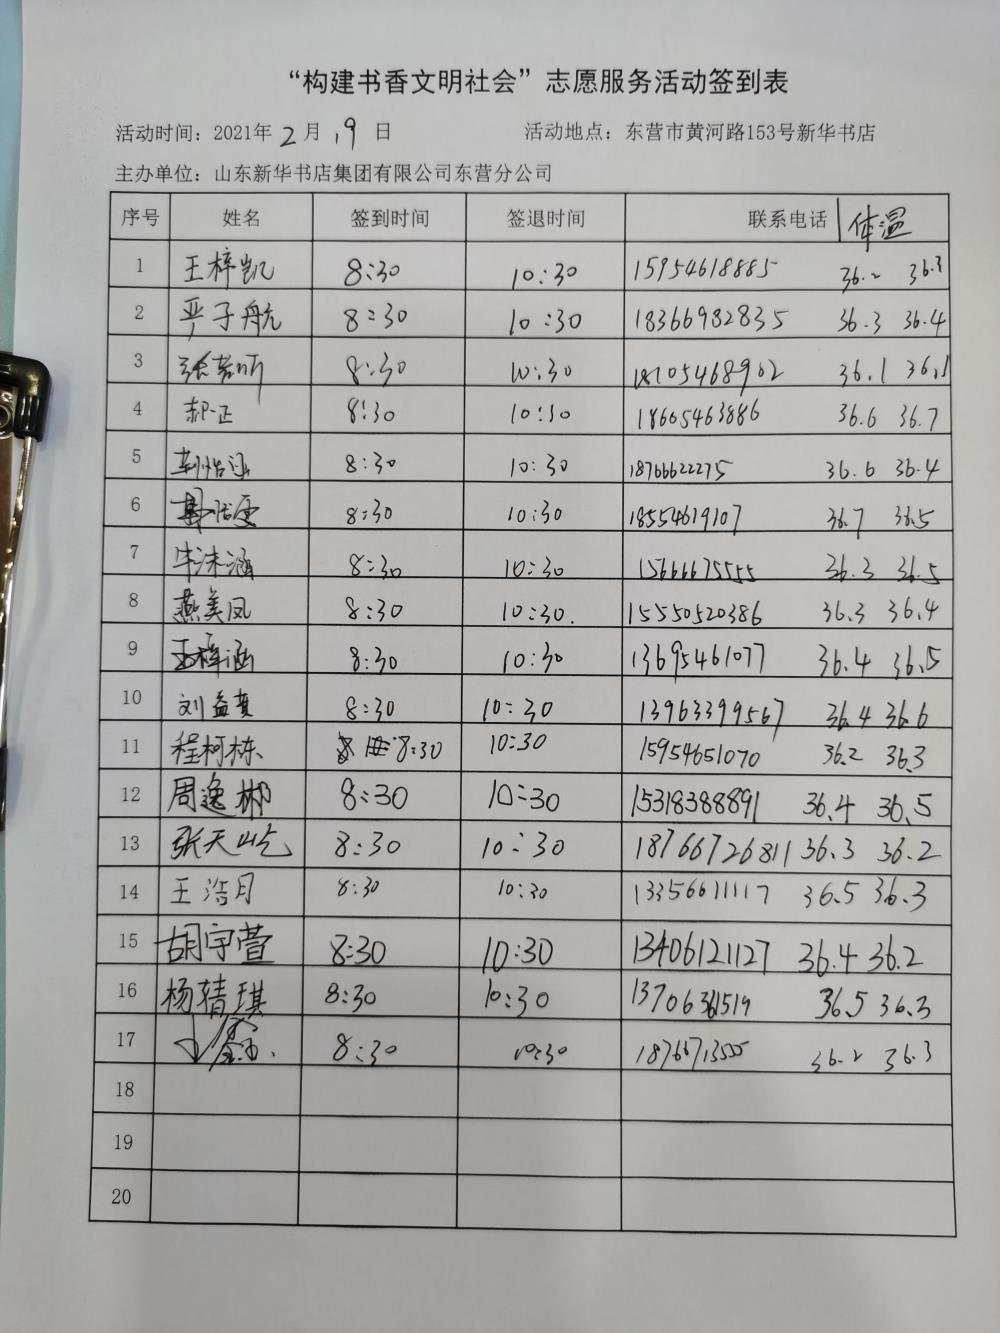 “构建书香文明社会”志愿服务活动签到表
活动时间：2021年 2 月 19 日 活动地点：东营市黄河路153号新华书店
主办单位：山东新华书店集团有限公司东营分公司
序号 姓名 签到时间 签退时间 联系电话 体温
1 王梓凯 8:30 10:30 15954618885 36.2 36.3
2 严子航 8:30 10:30 18366982835 36.3 36.4
3 8:30 10:30 18105468902 36.1 36.1
4 郝正 8:30 10:30 18605463886 36.6 36.7
5 8:30 10:30 18766622275 36.6 36.4
6 8:30 10:30 18554619107 36.7 36.5
7 牛沫涵 8:30 10:30 15666675555 36.3 36.5
8 燕美凤 8:30 10:30. 15550520386 36.3 36.4
9 王梓涵 8:30 10:30 13695461077 36.4 36.5
10 刘益萁 8:30 10:30 13963399567 36.4 36.6
11 程柯栋 8:30 10:30 15954651070 36.2 36.3
12 周逸彬 8:30 10:30 15318388891 36.4 36.5
13 张天屹 8:30 10:30 18766726811 36.3 36.2
14 王浩月 8:30 10:30 13356611117 36.5 36.3
15 胡宇萱 8:30 10:30 13406121127 36.4 36.2
16 杨精琪 8:30 10:30 13706361519 36.5 36.3
17 8:30 10:30 18766713555 36.2 36.3
18
19
20